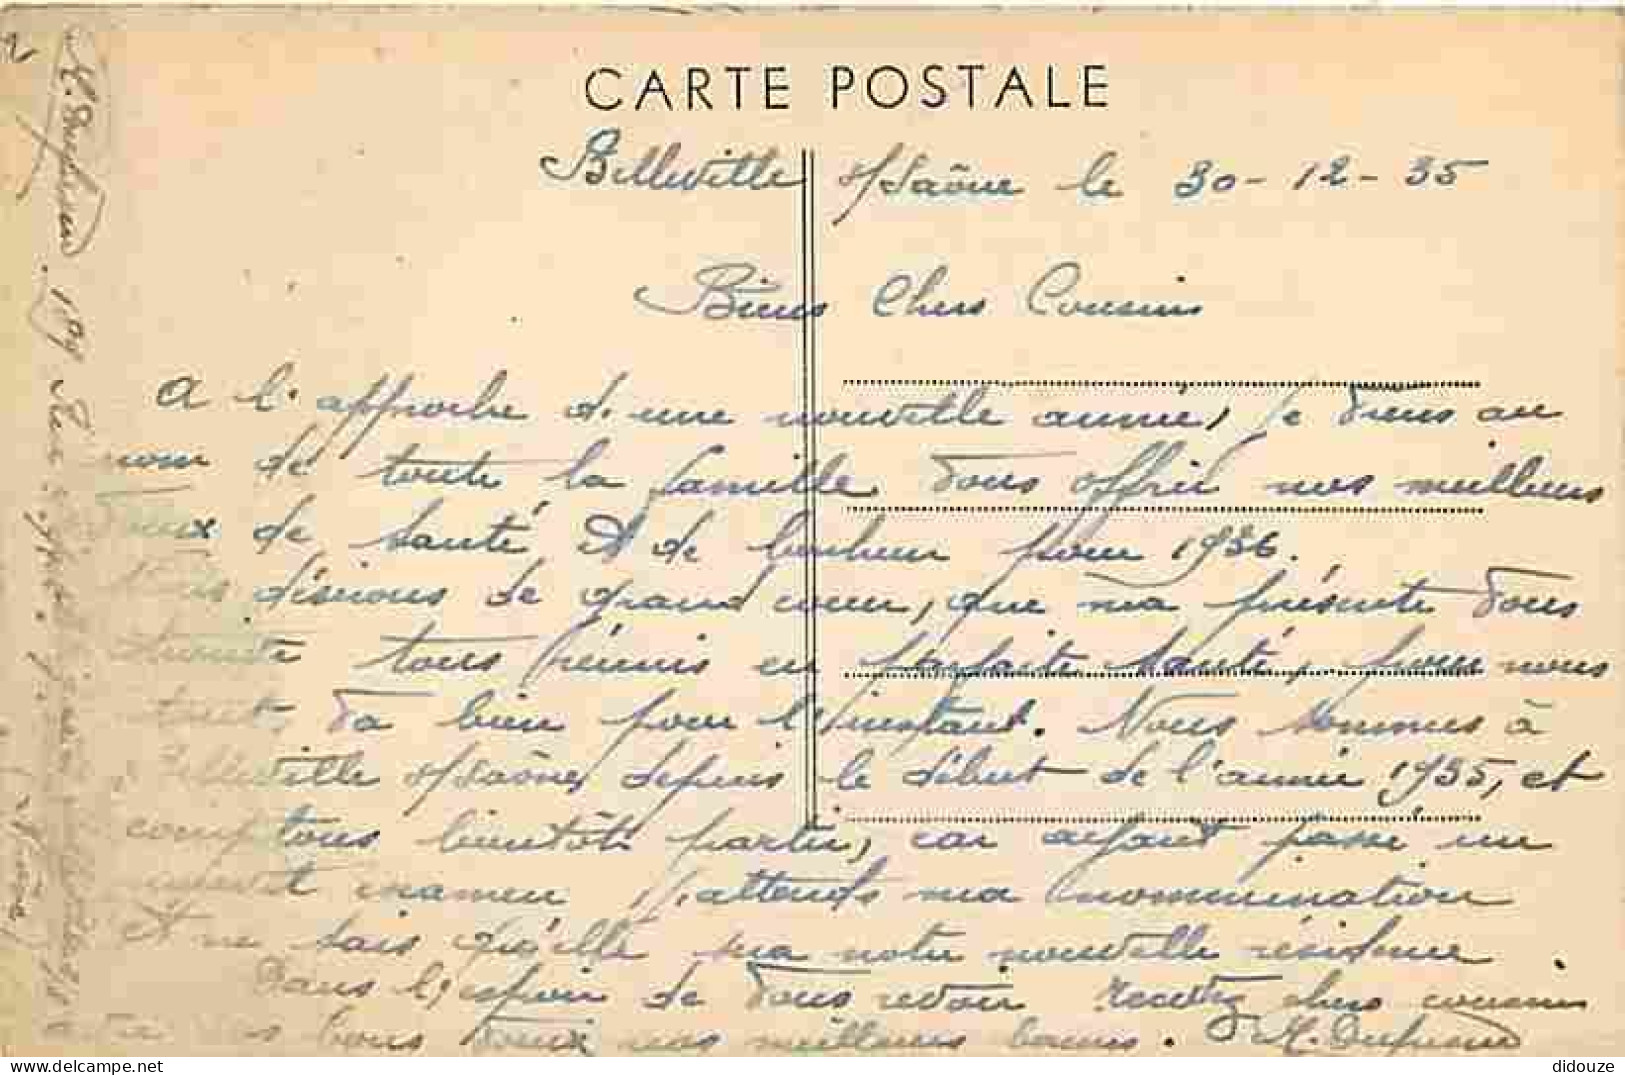 CARTE POSTALE
Belleville s/Saône le 30-12-35
Biens Chers Cousins
A l'approche d'une nouvelle année, je viens au
nom de toute la famille vous offrir nos meilleurs
Voeux de santé et de bonheur pour 1936.
désirons de grand coeur, que ma présente vous
trouve tous réunis en parfaite santé, pour nous
tout va bien pour l'instant. Nous sommes à
Belleville s/Saône, depuis le début de l'année 1935, et
comptons bientôt partir, car ayant passé un
examen j'attends ma nommination
et ne sais qu'elle sera notre nouvelle résidence
Dans l'espoir de vous revoir recevez chers cousins
tous deux nos meilleurs baisers. M. Dufresne
didouze